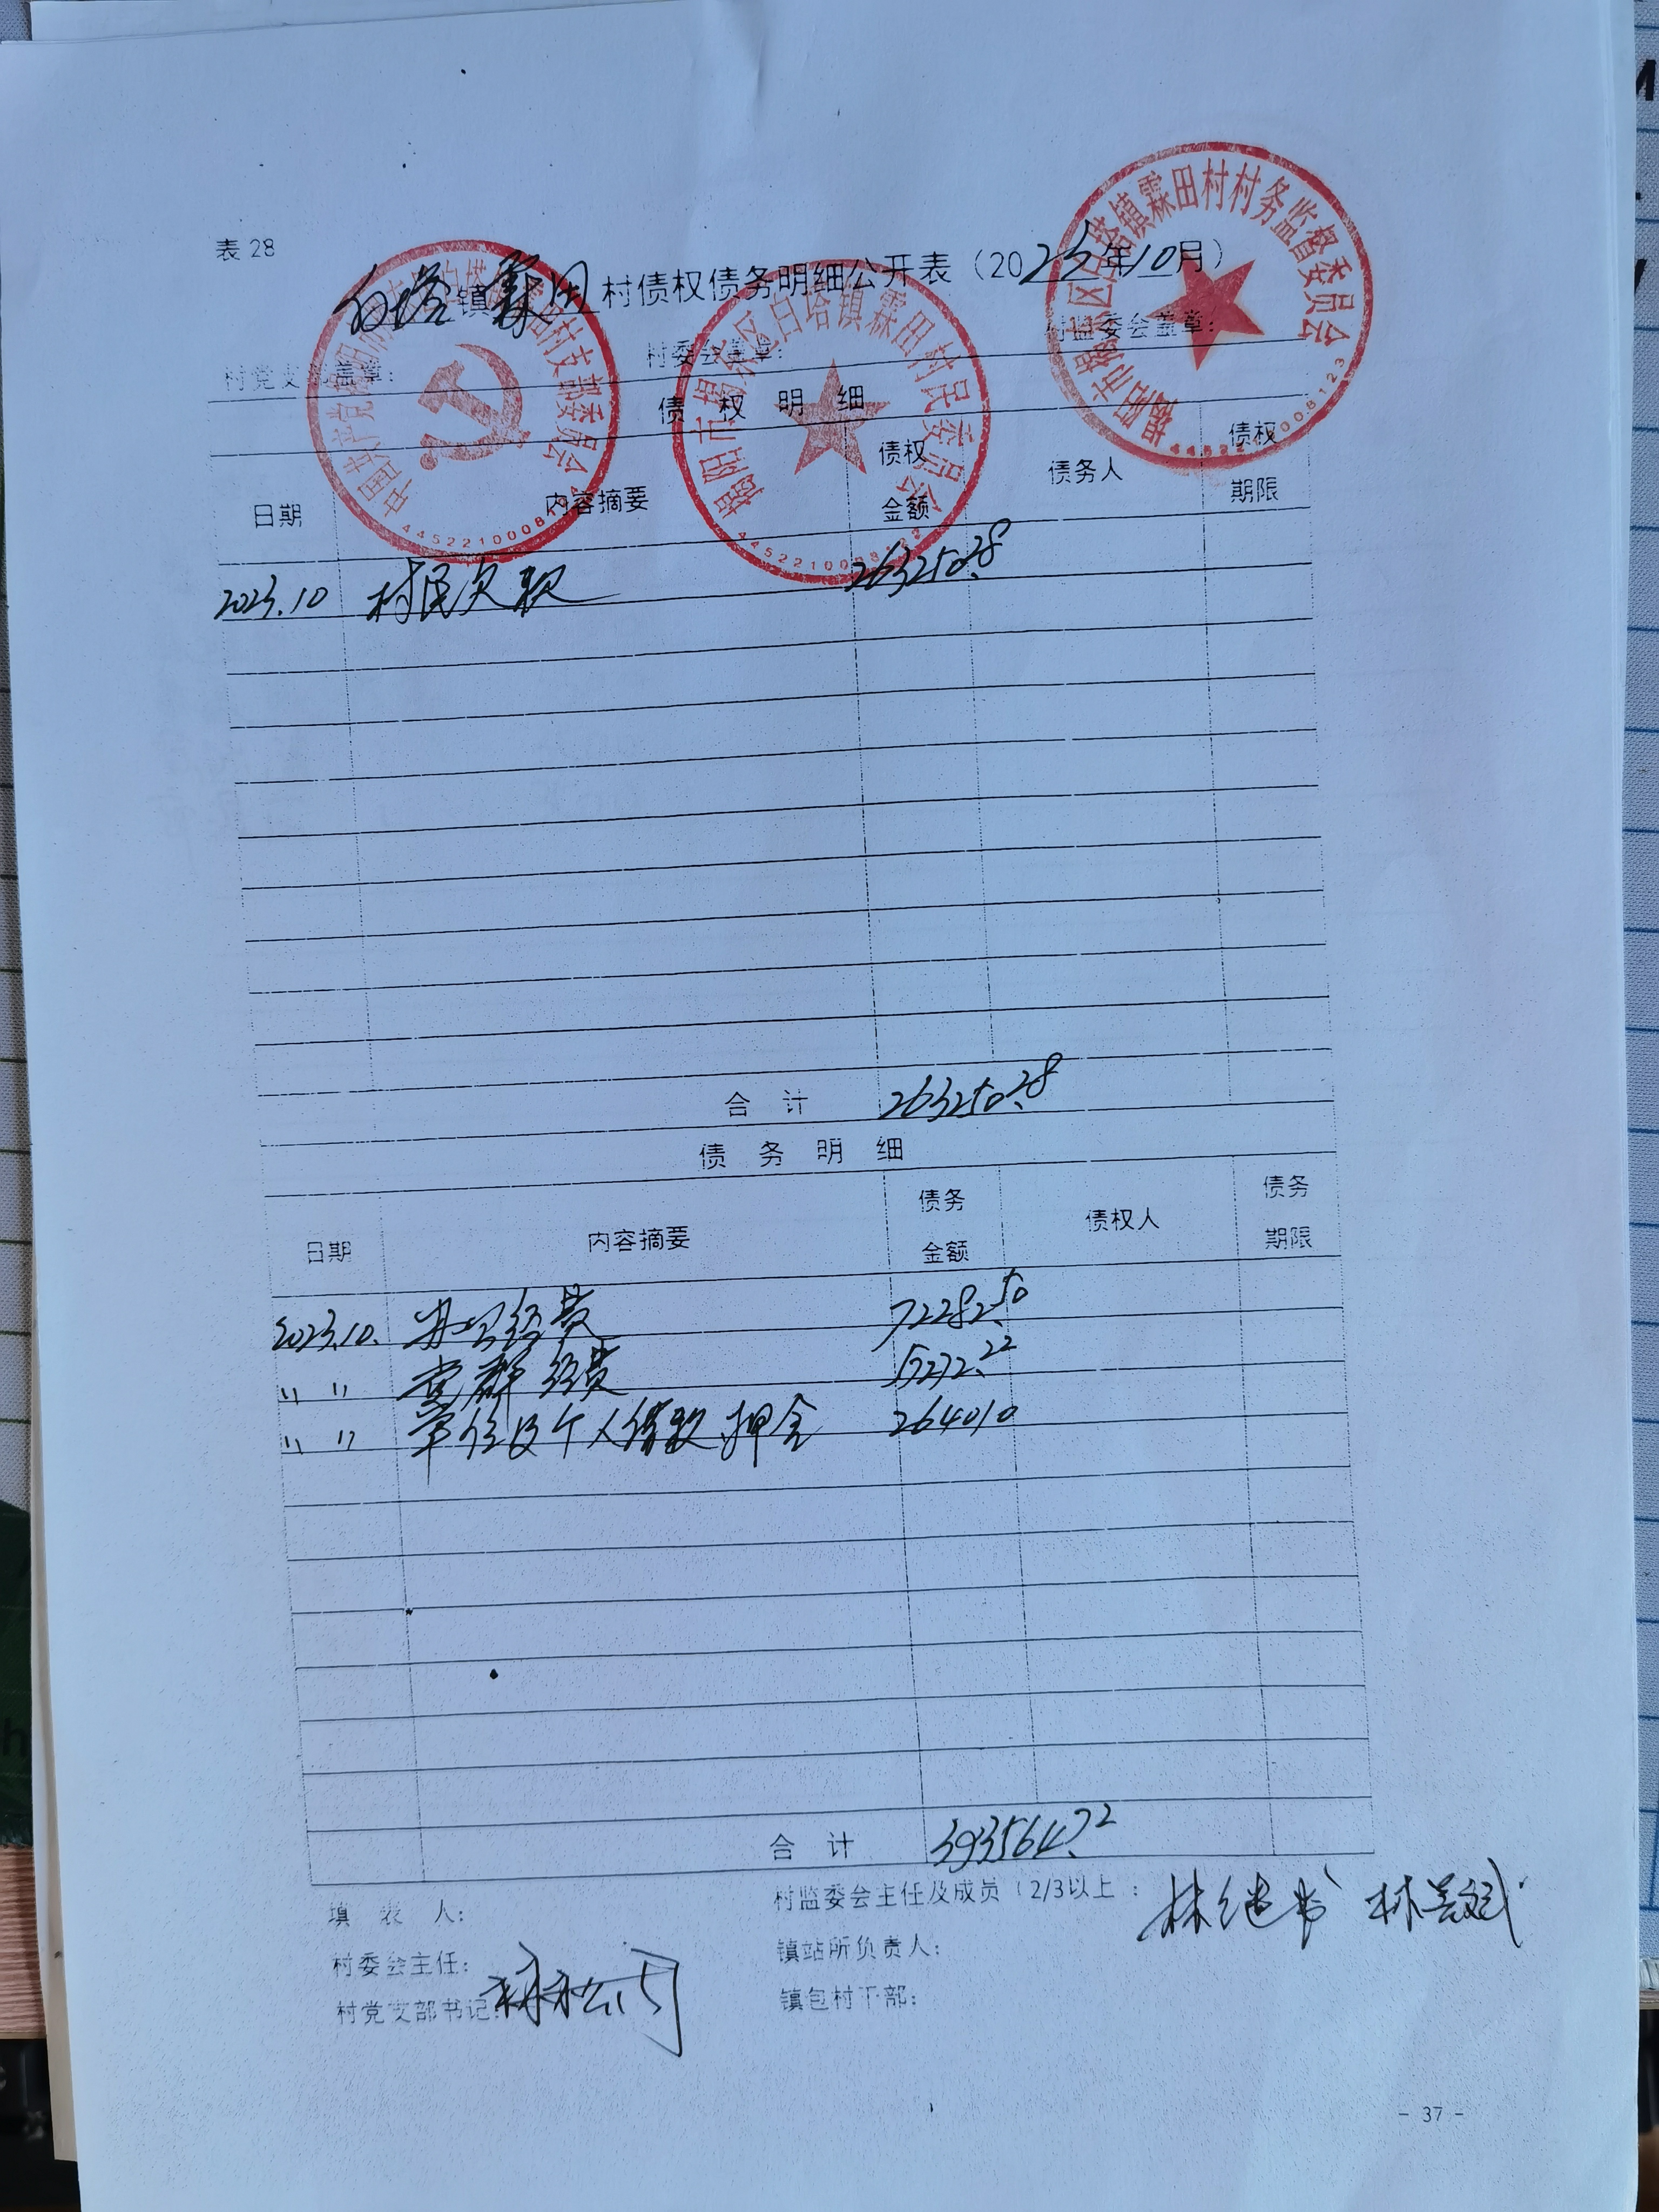 表 28
白塔镇霖田村债权债务明细公开表（2023年10月）
村党支部盖章：
村委会盖章：
村监委会盖章：
中国共产党揭阳市揭东区白塔镇霖田村支部委员会
揭阳市揭东区白塔镇霖田村民委员会
揭阳市揭东区白塔镇霖田村村务监督委员会
债权明细
日期 内容摘要 债权金额 债务人 债权期限
2023.10 村民欠款 263250.28
合计 263250.28
债务明细
日期 内容摘要 债务金额 债权人 债务期限
2023.10. 办公经费 72282.50
〃 〃 党群经费 57272.22
〃 〃 单位及个人借款.押金 264010
合计 393564.72
填表人：
村监委会主任及成员（2/3以上： 林继书
村委会主任：
镇站所负责人：
村党支部书记：
镇包村干部：
- 37 -